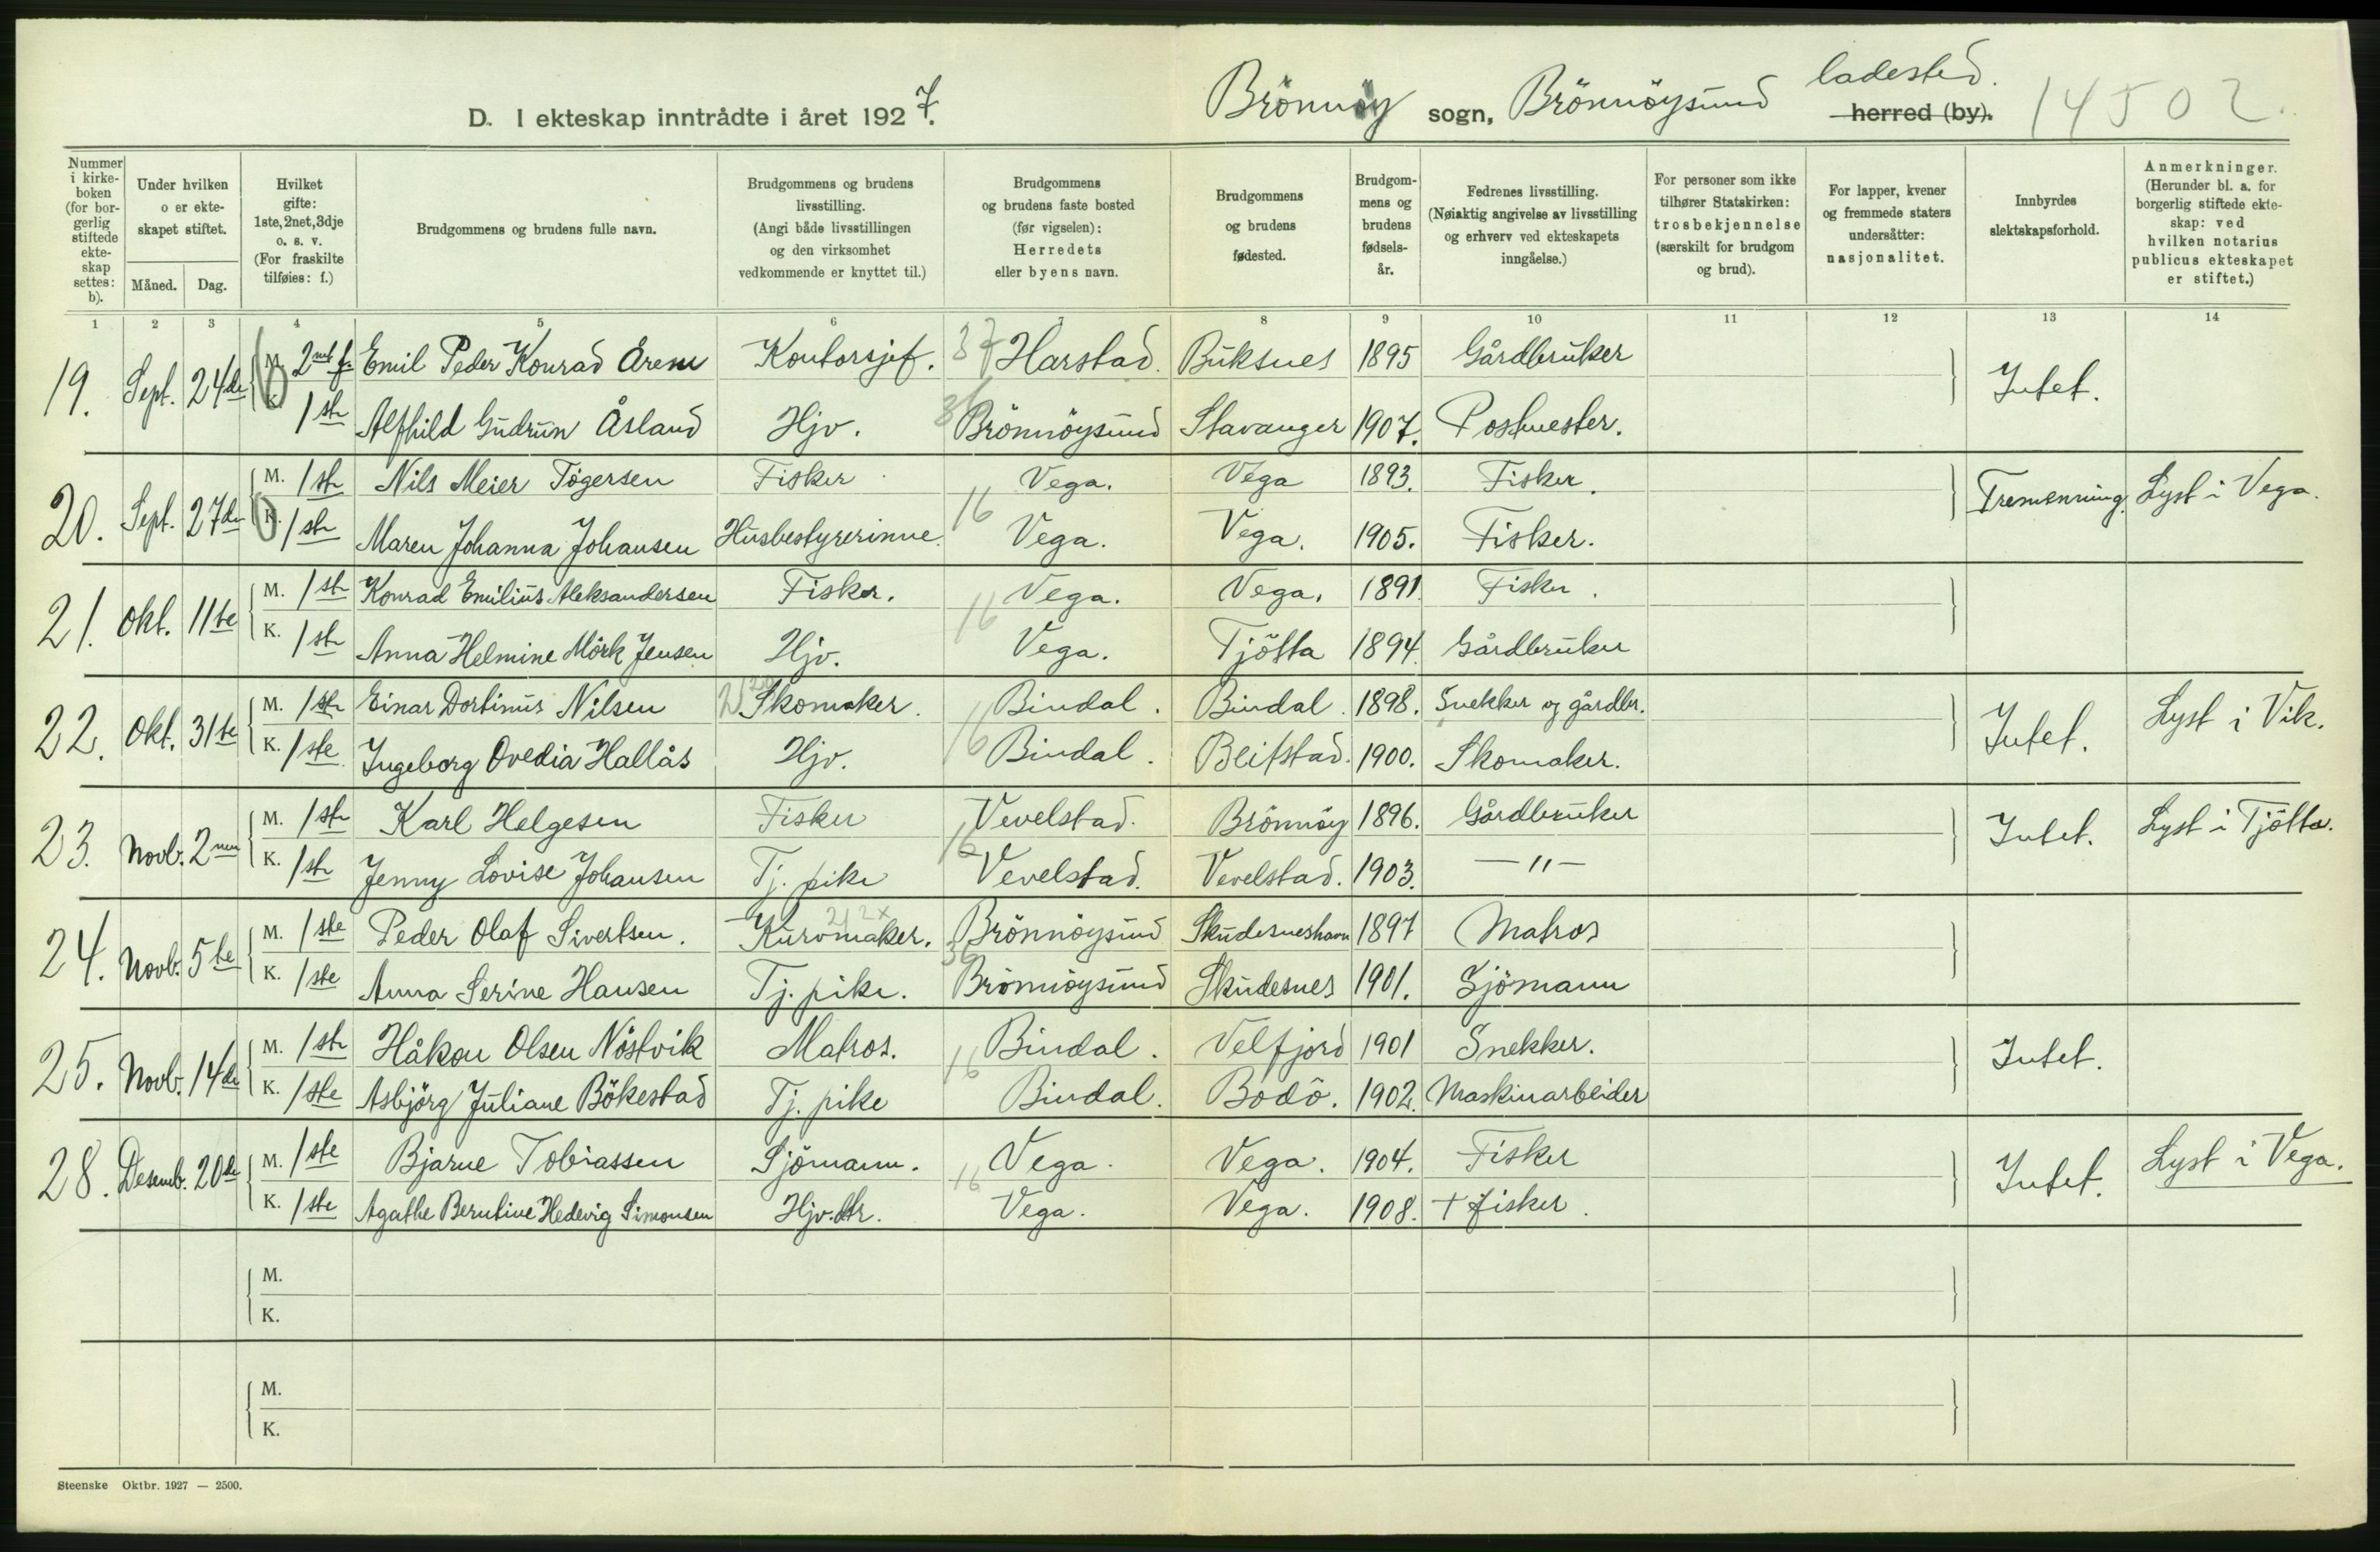 D. I ekteskap inntrådte i året 1927.
Brönnöy sogn, Brönnöysund ladested. herred (by). 14502.
Nummer i kirkeboken (for borgerlig stiftede ekteskap settes: b).
Under hvilken o er ekteskapet stiftet.
Måned. Dag.
Hvilket gifte: 1ste, 2net, 3dje o. s. v. (For fraskilte tilføies: f.)
Brudgommens og brudens fulle navn.
Brudgommens og brudens livsstilling. (Angi både livsstillingen og den virksomhet vedkommende er knyttet til.)
Brudgommens og brudens faste bosted (før vigselen): Herredets eller byens navn.
Brudgommens og brudens fødested.
Brudgommens og brudens fødselsår.
Fedrenes livsstilling. (Nøiaktig angivelse av livsstilling og erhverv ved ekteskapets inngåelse.)
For personer som ikke tilhører Statskirken: trosbekjennelse (særskilt for brudgom og brud).
For lapper, kvener og fremmede staters undersåtter: nasjonalitet.
Innbyrdes slektskapsforhold.
Anmerkninger. (Herunder bl. a. for borgerlig stiftede ekteskap: ved hvilken notarius publicus ekteskapet er stiftet.)
1 2 3 4 5 6 7 8 9 10 11 12 13 14
19. Sept. 24de M. 2net f. Emil Peder Konrad Arem Kontorsjef. 37 Harstad. Buksnes 1895 Gårdbruker Intet.
K. 1ste Alfhild Gudrun Åsland Hjv. 36 Brönnöysund Stavanger 1907. Postmester.
20. Sept. 27de M. 1ste Nils Meier Togersen Fisker Vega. Vega 1893. Fisker. Tremenning. Lyst i Vega.
K. 1ste Maren Johanna Johansen Husbestyrerinne. 16 Vega. Vega. 1905. Fisker.
21. Okt. 11te M. 1ste Konrad Emilius Aleksandersen Fisker. Vega. Vega. 1891. Fisker.
K. 1ste Anna Helmine Mörk Jensen Hjv. 16 Vega. Tjötta 1894. Gårdbruker
22. Okt. 31te M. 1ste Einar Dortinus Nilsen Skomaker. Bindal. Bindal. 1898. Snekker og gårdbr. Intet. Lyst i Vik.
K. 1ste Ingeborg Ovedia Hallås Hjv. 16 Bindal. Beitstad. 1900. Skomaker.
23. Novb. 2nen M. 1ste Karl Helgesen Fisker Vevelstad. Brönnöy 1896. Gårdbruker Intet. Lyst i Tjötta.
K. 1ste Jenny Lovise Johansen Tj. pike 16 Vevelstad. Vevelstad. 1903. — " —
24. Novb. 5te M. 1ste Peder Olaf Sivertsen. Kurvmaker. Brönnöysund Skudesneshavn 1897 Matros
K. 1ste Anna Serine Hansen Tj. pike. 36 Brönnöysund Skudesnes 1901. Sjömann
25. Novb. 14de M. 1ste Håkon Olsen Nöstvik Matros. Bindal. Velfjord 1901 Snekker. Intet.
K. 1ste Asbjörg Juliane Bökestad Tj. pike 16 Bindal. Bodö. 1902. Maskinarbeider
28. Desemb. 20de M. 1ste Bjarne Tobiassen Sjömann. Vega. Vega. 1904. Fisker Intet. Lyst i Vega.
K. 1ste Agathe Berntine Hedevig Simonsen Hjv. 16 Vega. Vega. 1908. + fisker.
M.
K.
M.
K.
Steenske Oktbr. 1927 — 2500.